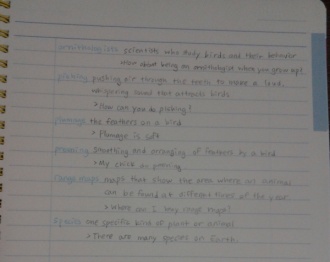 ornithologists scientists who study birds and their behavior
How about being an ornithologist when you grow up?
pishing pushing air through the teeth to make a loud,
whispering sound that attracts birds
> How can you do pishing?
plumage the feathers on a bird
> Plumage is soft
preening smoothing and arranging of feathers by a bird
> My chick on preening
range maps maps that show the area where an animal
can be found at different times of the year
> Where can I buy range maps?
Species one specific kind of plant or animal
> There are many species on Earth.